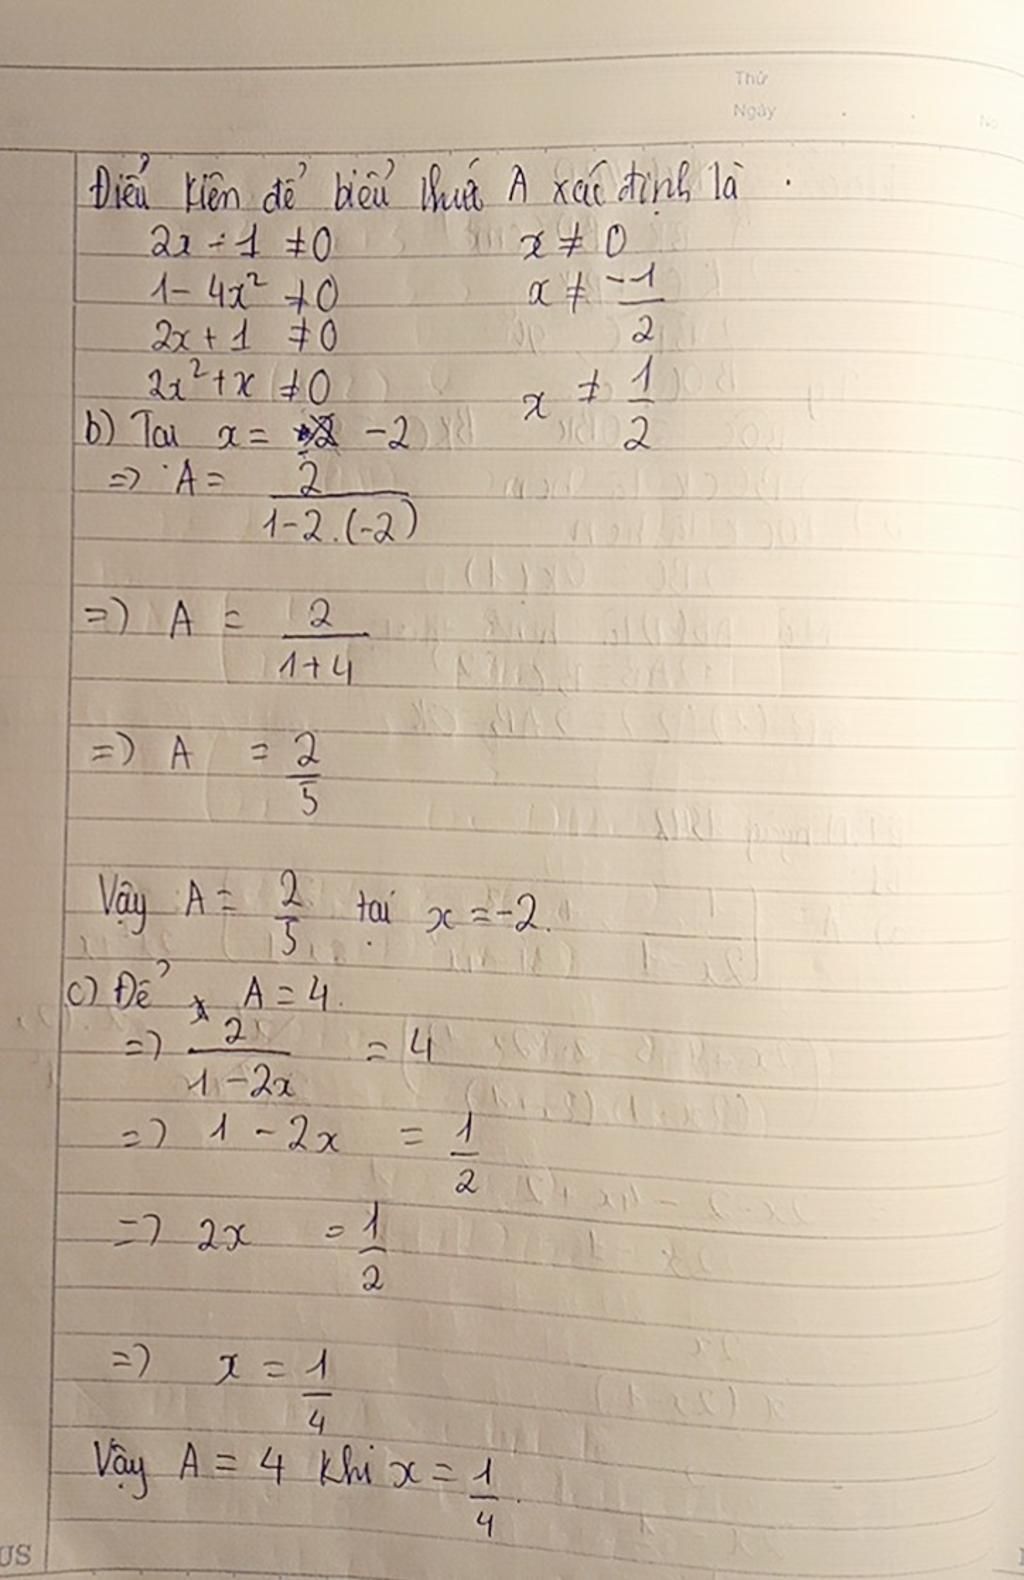 Thứ
Ngày
No
Điều kiện để biểu thức A xác định là
2x - 1 ≠ 0 x ≠ 0
1 - 4x² ≠ 0 x ≠ -1/2
2x + 1 ≠ 0
2x² + x ≠ 0 x ≠ 1/2
b) Tại x = -2
=> A = 2/(1-2.(-2))
=> A = 2/(1+4)
=> A = 2/5
Vậy A = 2/5 tại x = -2.
c) Để A = 4.
=> 2/(1-2x) = 4
=> 1 - 2x = 1/2
=> 2x = 1/2
=> x = 1/4
Vậy A = 4 khi x = 1/4.
US